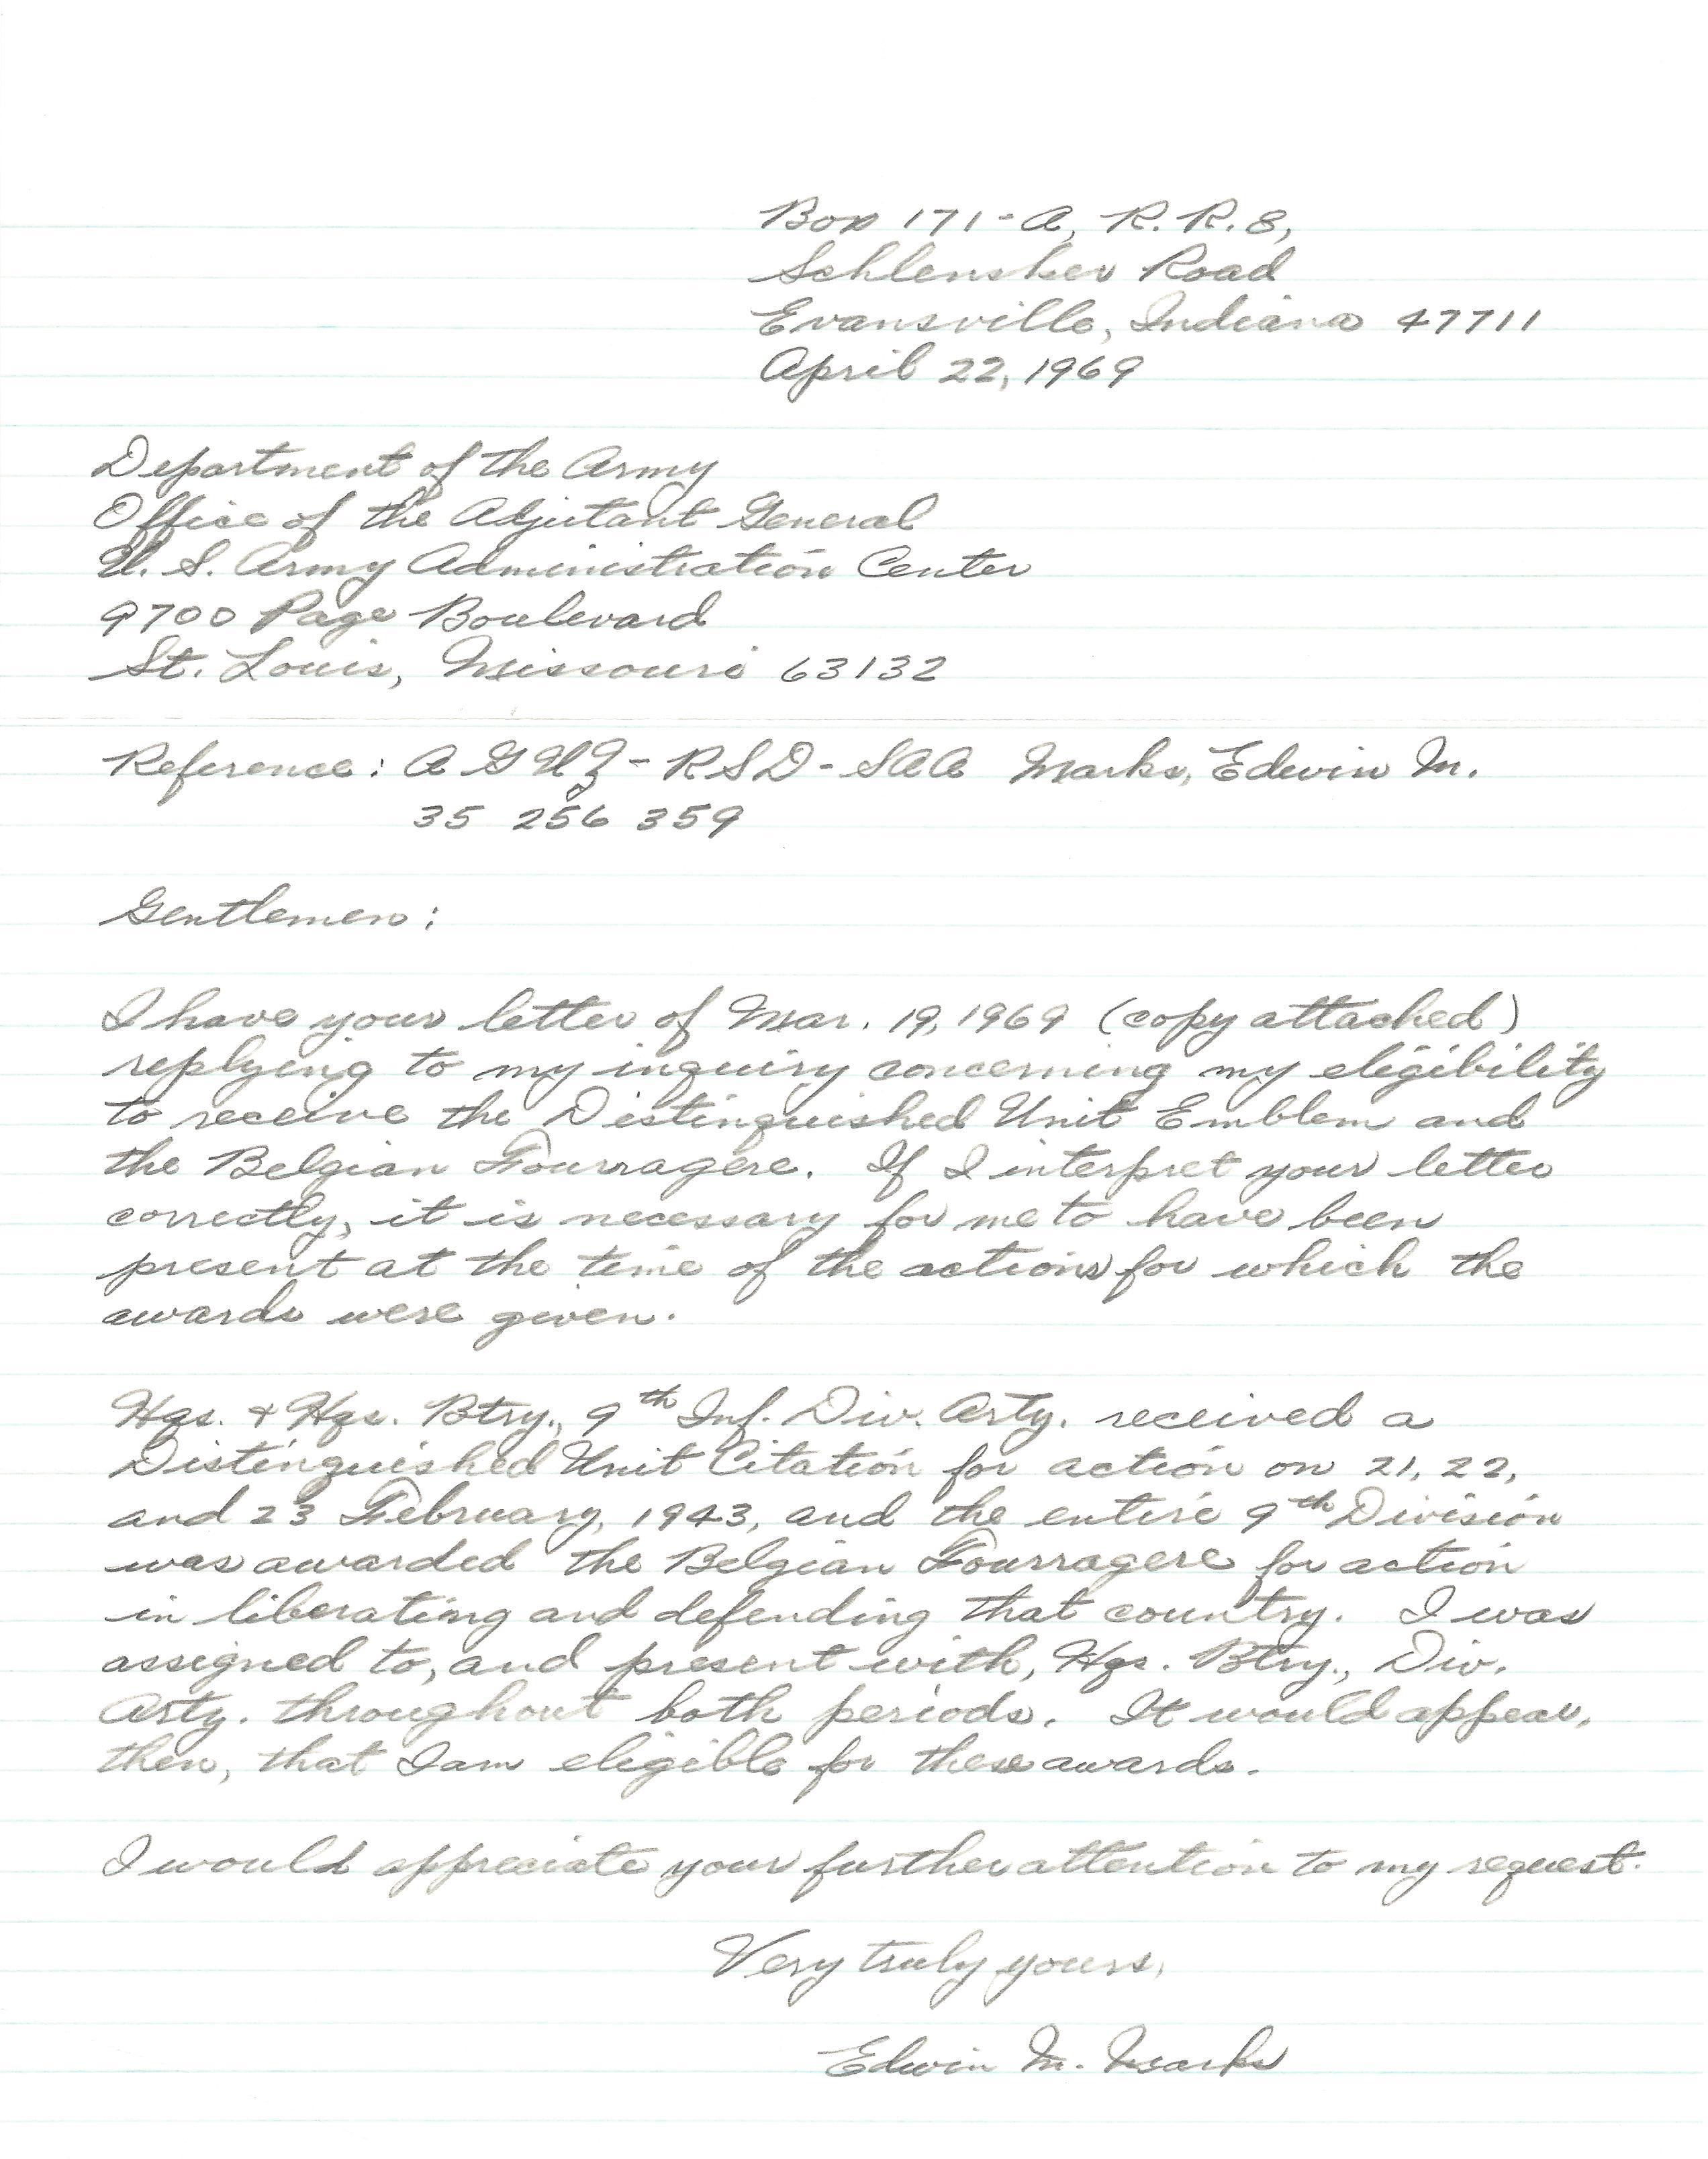 Box 171-A, R.R. 8,
Schlensker Road
Evansville, Indiana 47711
April 22, 1969
Department of the Army
Office of the Adjutant General
U.S. Army Administration Center
9700 Page Boulevard
St. Louis, Missouri 63132
Reference: AGUZ-RSD-SAA Marks, Edwin M.
35 256 359
Gentlemen:
I have your letter of Mar. 19, 1969 (copy attached)
replying to my inquiry concerning my eligibility
to receive the Distinguished Unit Emblem and
the Belgian Fourragere. If I interpret your letter
correctly, it is necessary for me to have been
present at the time of the actions for which the
awards were given.
Hqs. & Hqs. Btry., 9th Inf. Div. Arty. received a
Distinguished Unit Citation for action on 21, 22,
and 23 February, 1943, and the entire 9th Division
was awarded the Belgian Fourragere for action
in liberating and defending that country. I was
assigned to, and present with, Hqs. Btry., Div.
Arty. throughout both periods. It would appear,
then, that I am eligible for these awards.
I would appreciate your further attention to my request.
Very truly yours,
Edwin M. Marks